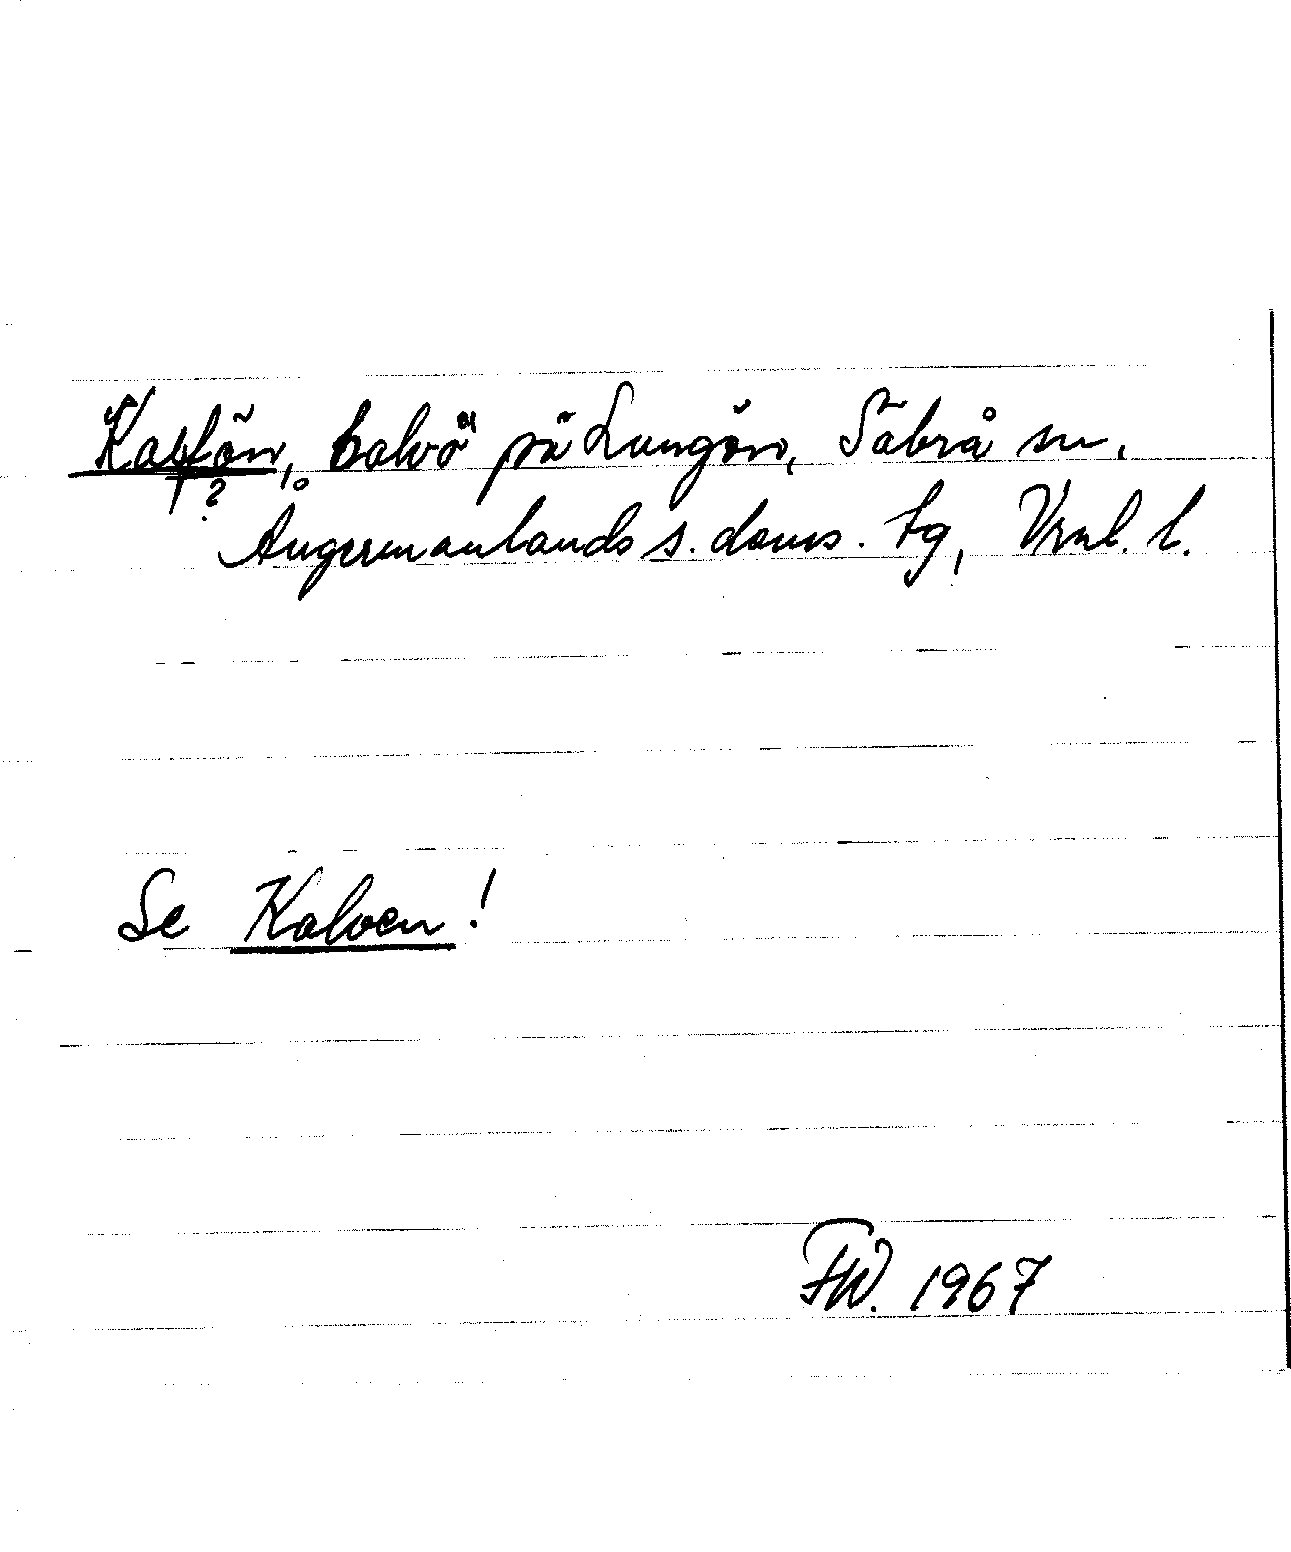 Kalfön, "halvö" på Lungön, Säbrå sn,
?
Ångermanlands s. doms. tg, Vrnl. l.
Se Kalven!
FW. 1967